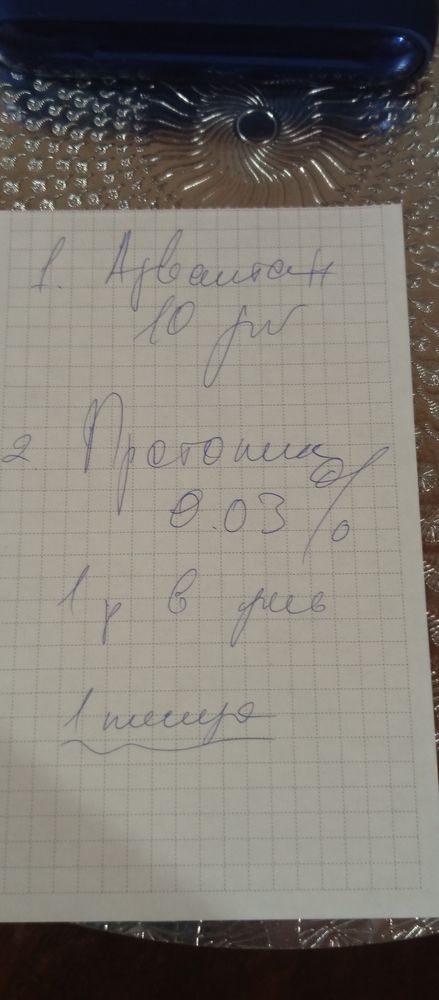 1. Адвантан
10 дн
2 Протопик
0.03%
1 р в день
1 месяц